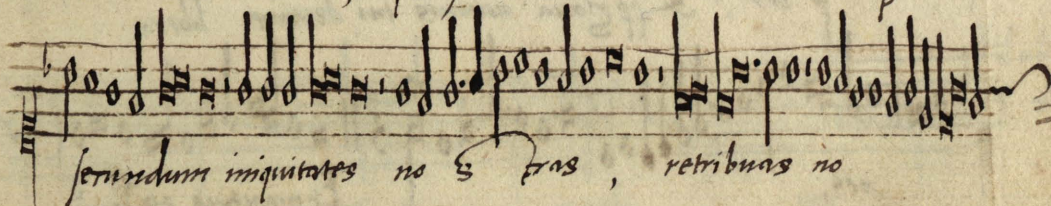 secundum iniquitates no s tras , retribuas no